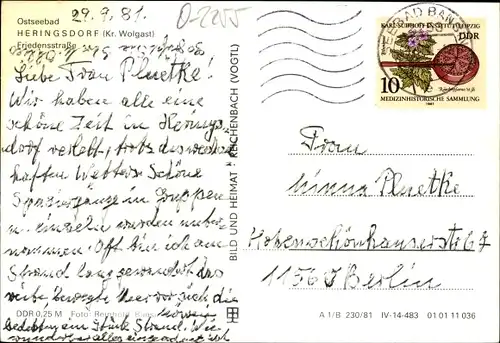 29.9.81.
D-2255
Ostseebad
HERINGSDORF (Kr. Wolgast)
Friedensstraße
Liebe Frau Pluetke!
Wir haben alle eine
schöne Zeit in Herings
dorf verlebt, trotz des wechsel
haften Wetters. Schöne
Spaziergänge in Gruppen
u. einzeln wurden unter
nommen. Oft bin ich am
Strand lang gewandert, das
weite, bewegte Meer vor
ein Stück Strand. Wie
wunderbar alles
DDR 0,25 M Foto:
BILD UND HEIMAT REICHENBACH (VOGTL)
KARL-SUDHOFF-INSTITUT LEIPZIG
DDR
10
MEDIZINHISTORISCHE SAMMLUNG
1981
SEEBAD BAN
Frau
Minna Pluetke
Hohenschönhauserstr. 67
1156 Berlin
A 1/B 230/81 IV-14-483 01 01 11 036